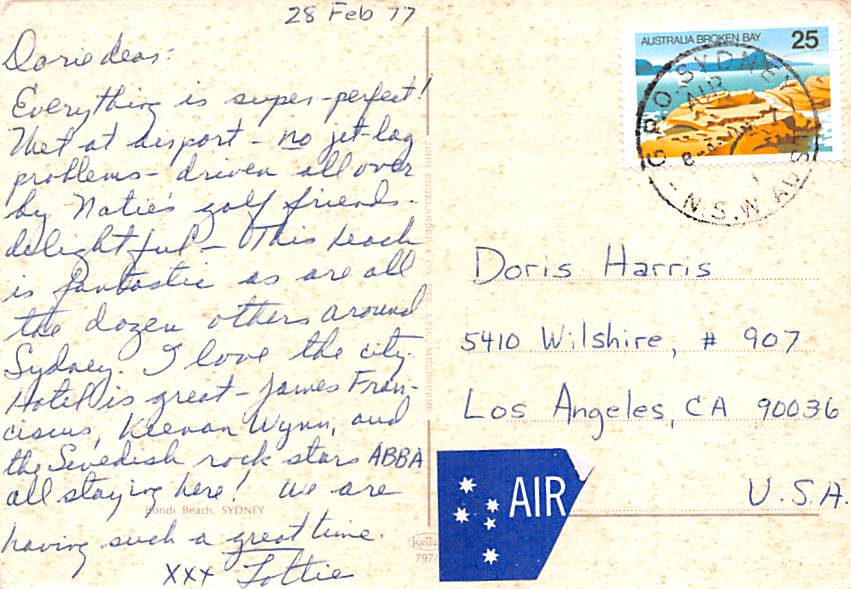 28 Feb 77
Dorie dear:
Everything is super-perfect!
Met at airport - no jet-lag
problems - driven all over
by Natie's golf friends -
delightful - This beach
is fantastic as are all
the dozen others around
Sydney. I love the city.
Hotel is great - James Fran-
ciscus, Keenan Wynn, and
the Swedish rock stars ABBA
all staying here! We are
having such a great time.
xxx Lottie
Bondi Beach, SYDNEY
AUSTRALIA BROKEN BAY 25
G.P.O. SYDNEY
AIR
N.S.W. AUST
Doris Harris
5410 Wilshire, # 907
Los Angeles, CA 90036
U.S.A.
AIR
797/